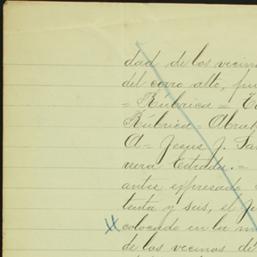 dad de los vecin
del cerro alto, pu
= Rúbrica = E
Rúbrica = Abra
A = Jesus J. Sa
vera Estrada. =
antes espresado
tenta y seis, el p
colocado en la m
de los vecinos de